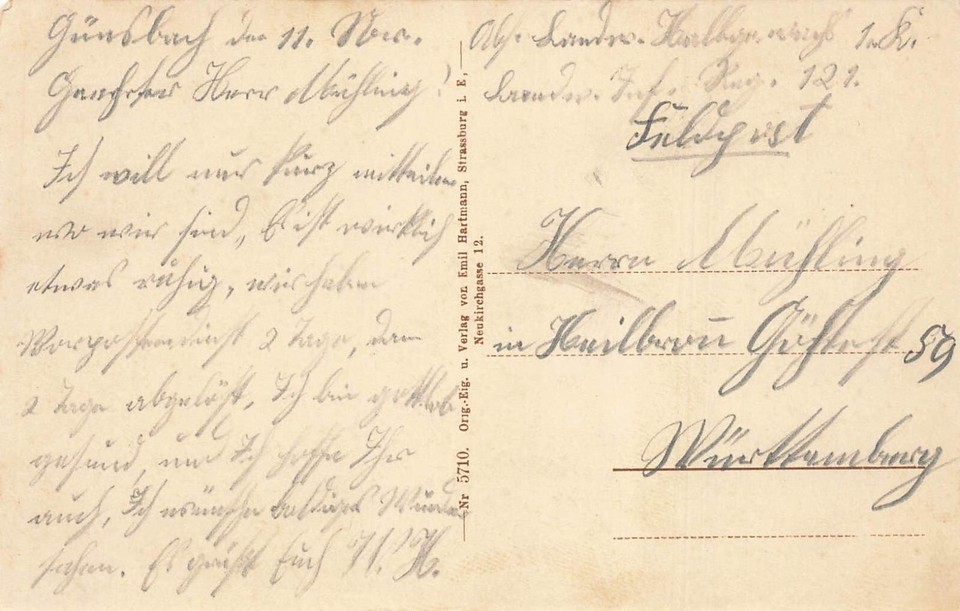 Günsbach den 11. Nov.
Geehrter Herr Mühling!
Ich will nur kurz mitteilen
wo wir sind, Es ist wirklich
etwas ruhig, wir haben
Vorpostendienst 2 Tage, dann
2 Tage abgelöst, Ich bin gottlob
gesund, und Ich hoffe Ihr
auch, Ich wünsche baldiges Wieder
sehen. Es grüßt Euch
Nr 5710. Orig.-Eig. u. Verlag von Emil Hartmann, Strassburg i. E.,
Neukirchgasse 12.
Abs. Landw. 1. K.
Landw. Inf. Reg. 121.
Feldpost
Herrn Mühling
in Heilbronn 59
Württemberg